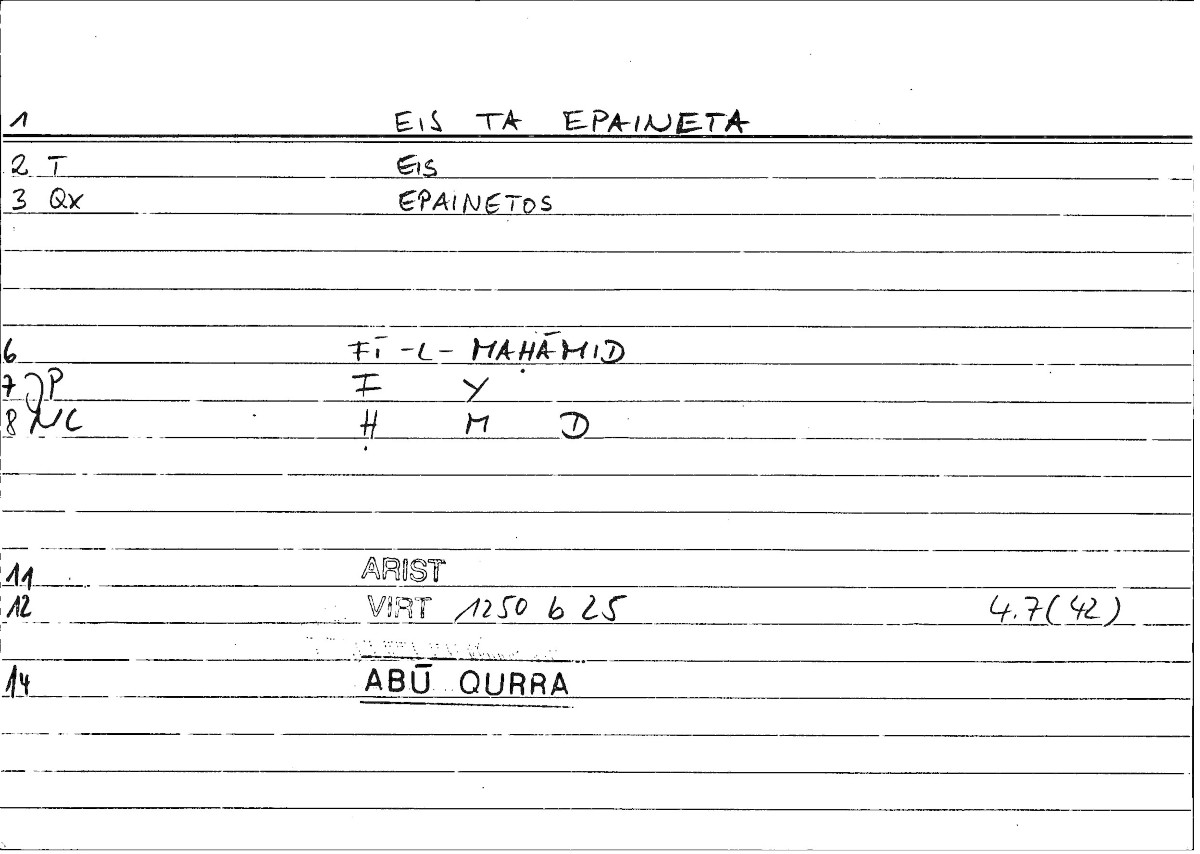 1 EIS TA EPAINETA
2 T EIS
3 Qx EPAINETOS
6 FĪ -L- MAḤĀMID
7 P F Y
8 NC Ḥ M D
11 ARIST
12 VIRT 1250 b 25 4.7(42)
14 ABŪ QURRA